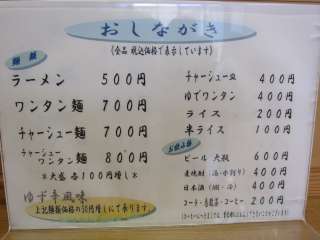 おしながき
(全品 税込価格で表示しています)
麺類
ラーメン 500円
ワンタン麺 700円
チャーシュー麺 700円
チャーシュー
ワンタン麺 800円
※大盛 各100円増し
ゆず辛風味
上記麺類価格の50円増しにて承ります
チャーシュー皿 400円
ゆでワンタン 400円
ライス 200円
半ライス 100円
お飲み物
ビール 大瓶 600円
麦焼酎(湯・水割り) 400円
日本酒(燗・冷) 400円
コーラ・烏龍茶・コーヒー 200円